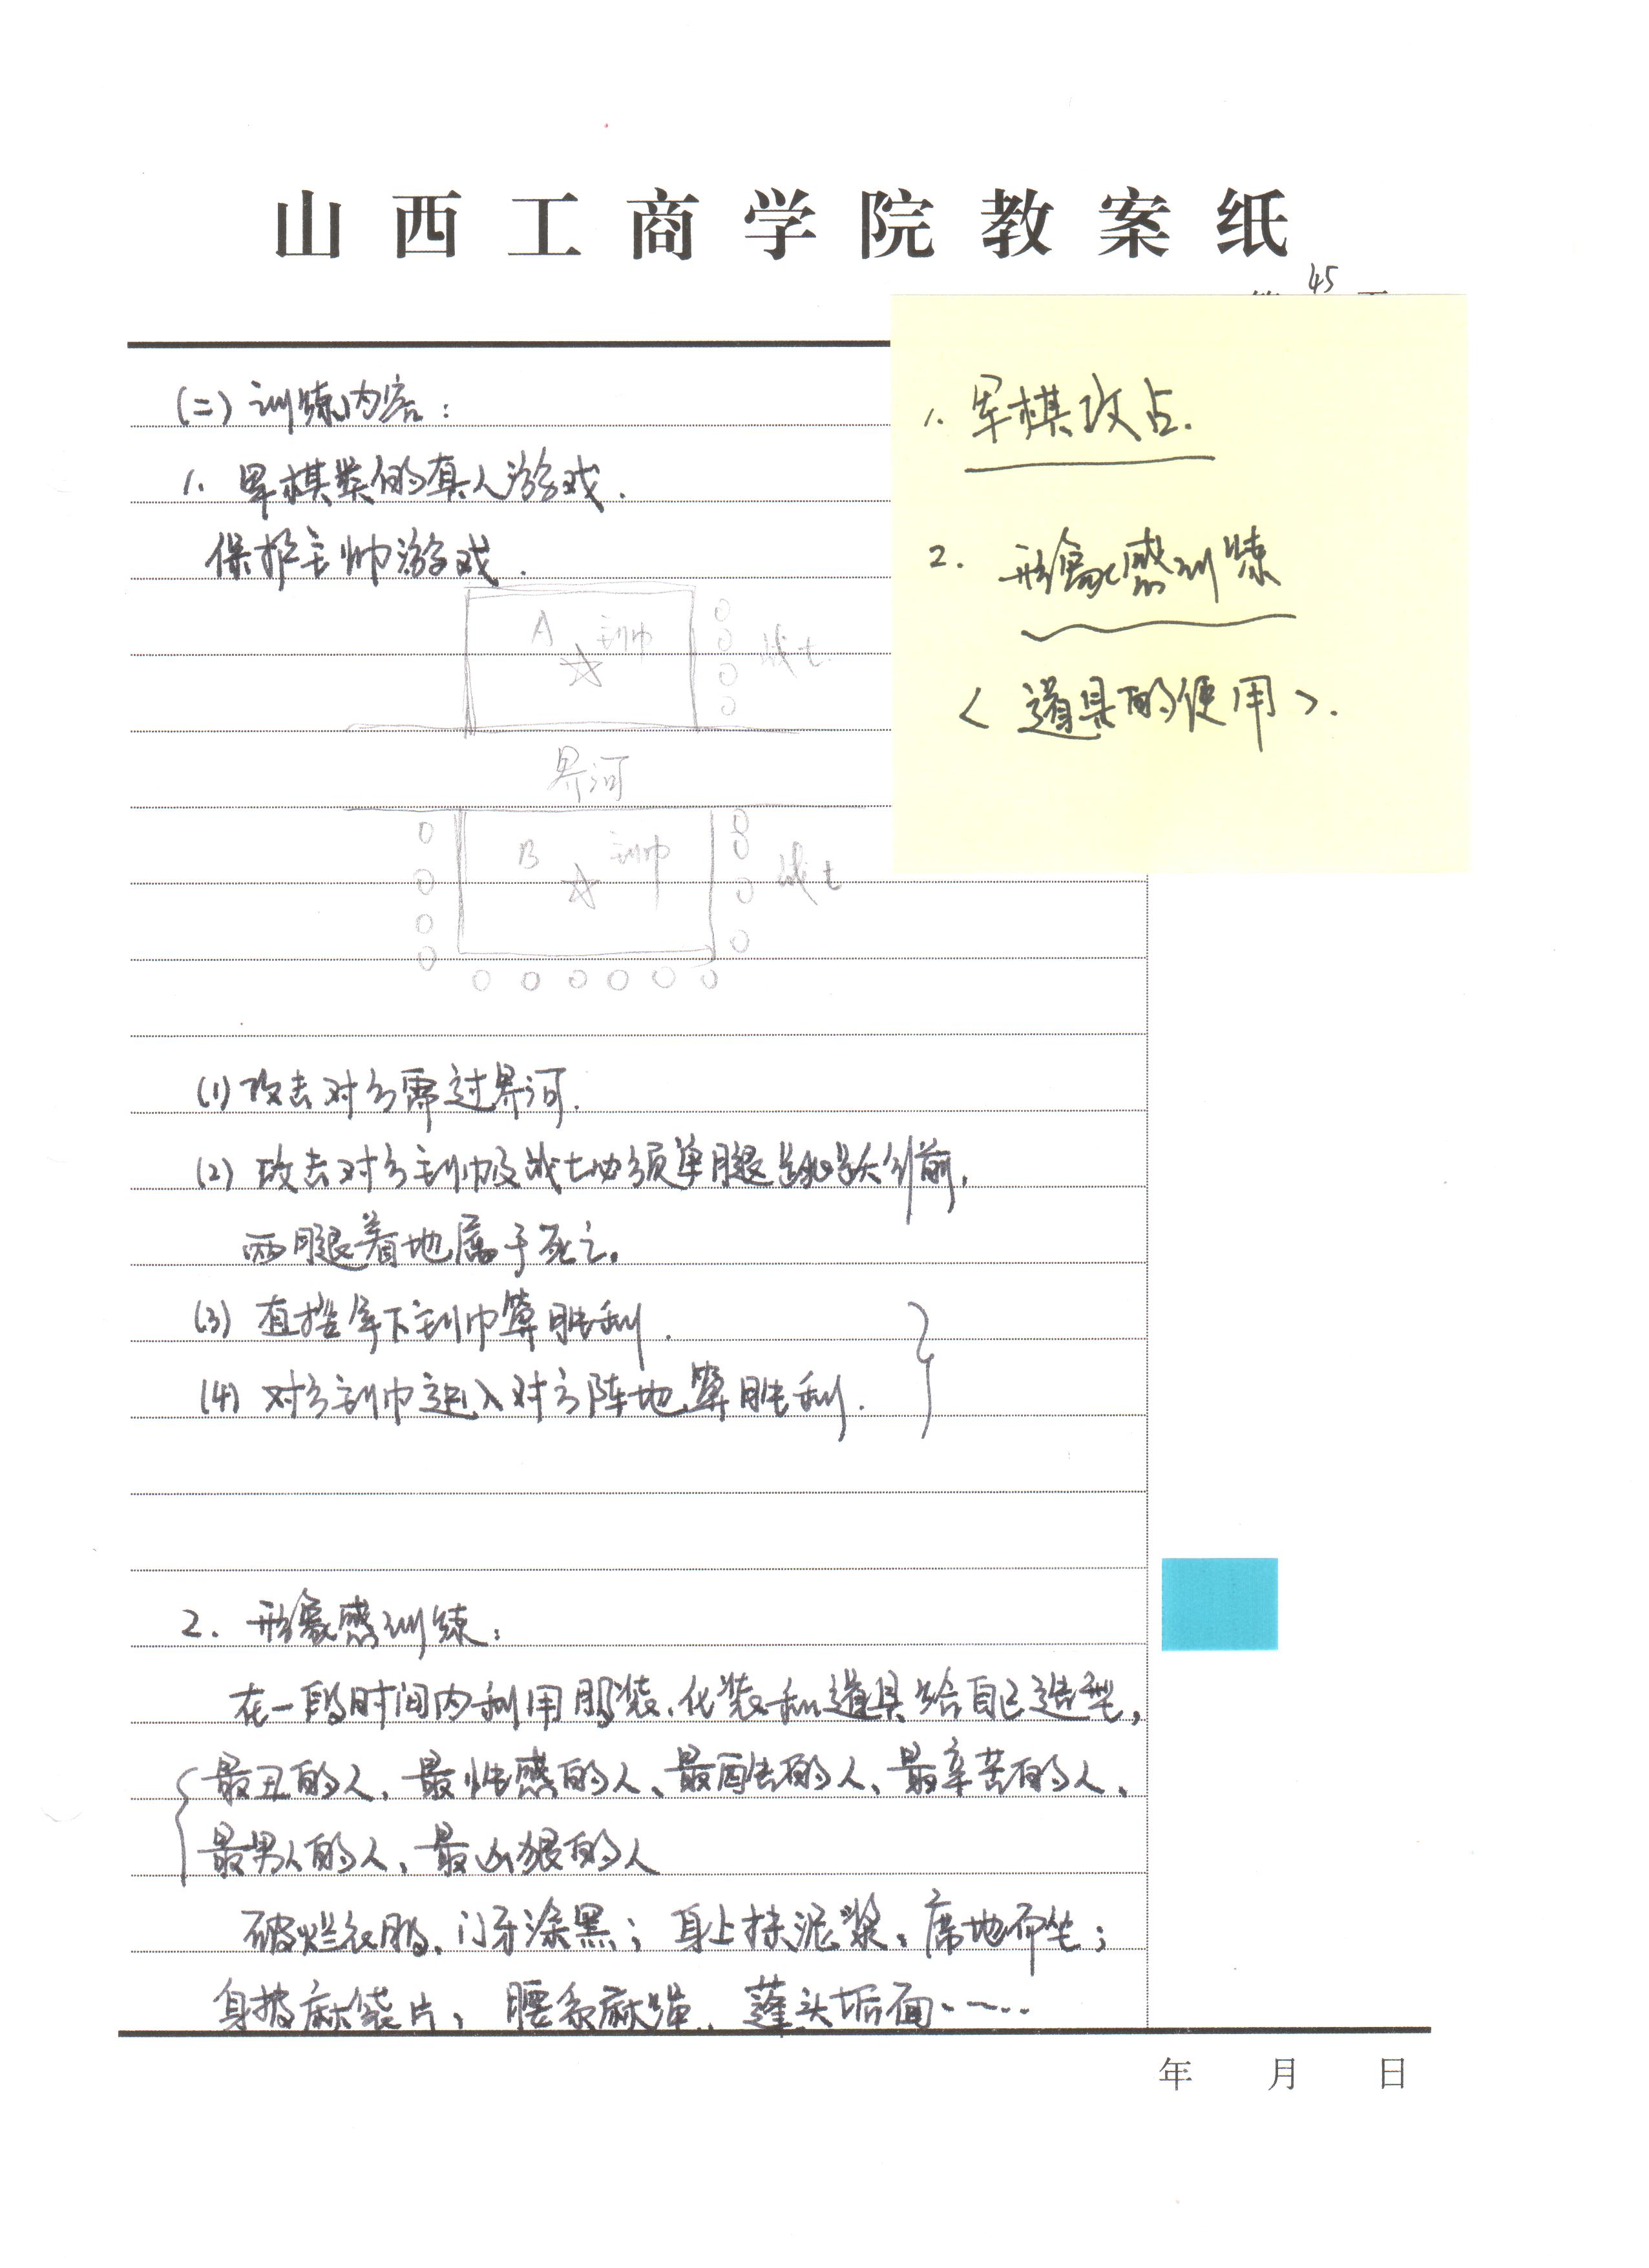 山西工商学院教案纸
45
(二) 训练内容：
1. 军棋类的真人游戏.
保护主帅游戏.
A 主帅
战士.
界河
B 主帅
战士
(1) 攻去对方需过界河.
(2) 攻去对方主帅及战士必须单腿跳跃引前,
两腿着地属于死亡.
(3) 直接拿下主帅算胜利.
(4) 对方主帅逃入对方阵地算胜利.
2. 形象感训练：
在一段时间内利用服装、化装和道具给自己造型,
最丑的人、最性感的人、最酷的人、最辛苦的人、
最男人的人、最凶狠的人
破烂衣服、门牙涂黑；身上抹泥浆，席地而坐；
身披麻袋片，腰系麻绳、蓬头垢面……
1. 军棋攻占.
2. 形象感训练
<道具的使用>.
年 月 日